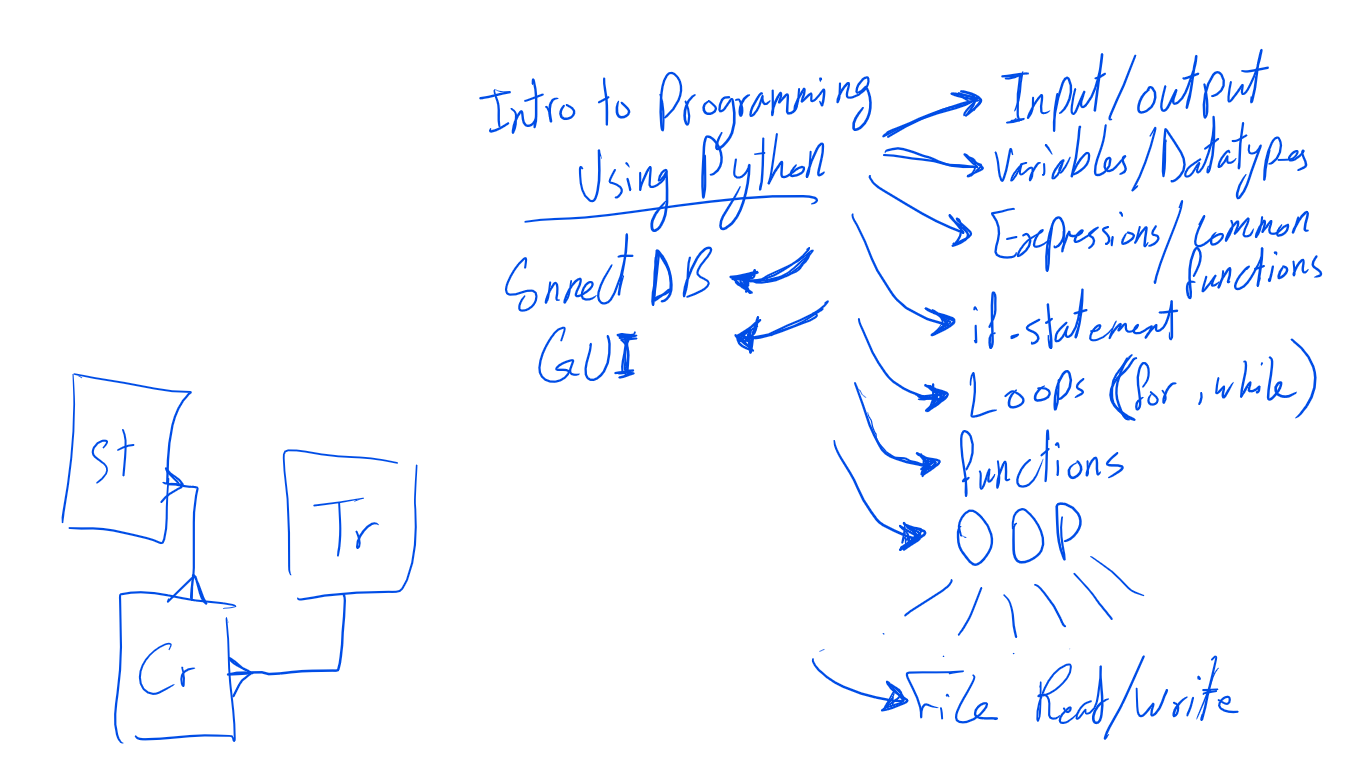 Intro to Programming
Using Python
Connect DB
GUI
Input/output
Variables/Datatypes
Expressions/common
functions
if-statement
Loops (for, while)
functions
OOP
File Read/write
St
Tr
Cr